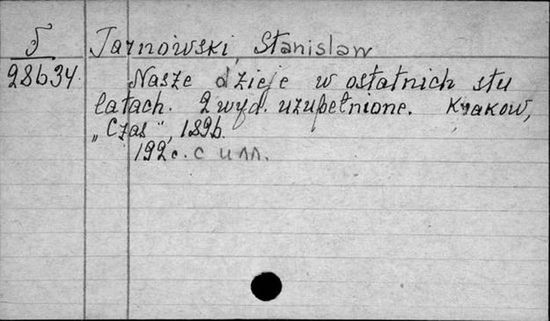 Б
28634
Tarnowski, Stanislaw
Nasze dzieje w ostatnich stu
latach. 2 wyd. uzupełnione. Krakow,
„Czas", 1896.
192 с. с илл.